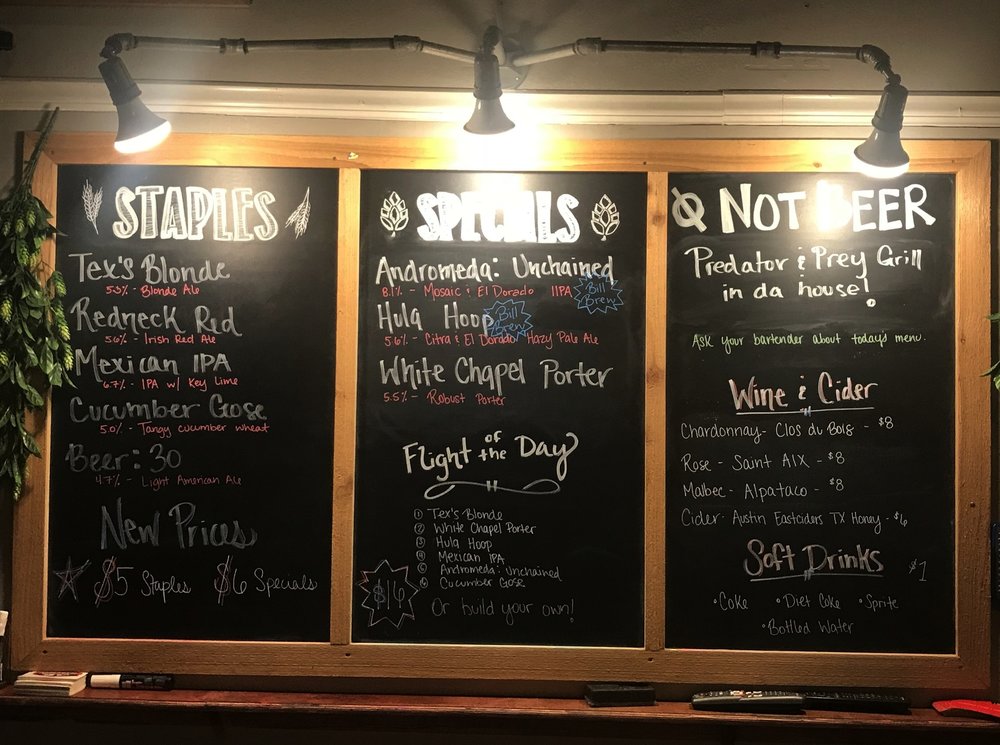 STAPLES
Tex's Blonde
5.3% - Blonde Ale
Redneck Red
5.6% - Irish Red Ale
Mexican IPA
6.7% - IPA w/ Key Lime
Cucumber Gose
5.0% - Tangy cucumber wheat
Beer: 30
4.7% - Light American Ale
New Prices
$5 Staples $6 Specials
SPECIALS
Andromeda: Unchained
8.1% - Mosaic & El Dorado IIPA
Bill
Brew
Hula Hoop
Bill
Brew
5.6% - Citra & El Dorado Hazy Pale Ale
White Chapel Porter
5.5% - Robust Porter
Flight of the Day
① Tex's Blonde
② White Chapel Porter
③ Hula Hoop
④ Mexican IPA
⑤ Andromeda: Unchained
⑥ Cucumber Gose
$16
Or build your own!
NOT BEER
Predator & Prey Grill
in da house!
Ask your bartender about today's menu.
Wine & Cider
Chardonnay - Clos du Bois - $8
Rose - Saint AIX - $8
Malbec - Alpataco - $8
Cider - Austin Eastciders TX Honey - $6
Soft Drinks $1
• Coke • Diet Coke • Sprite
• Bottled Water